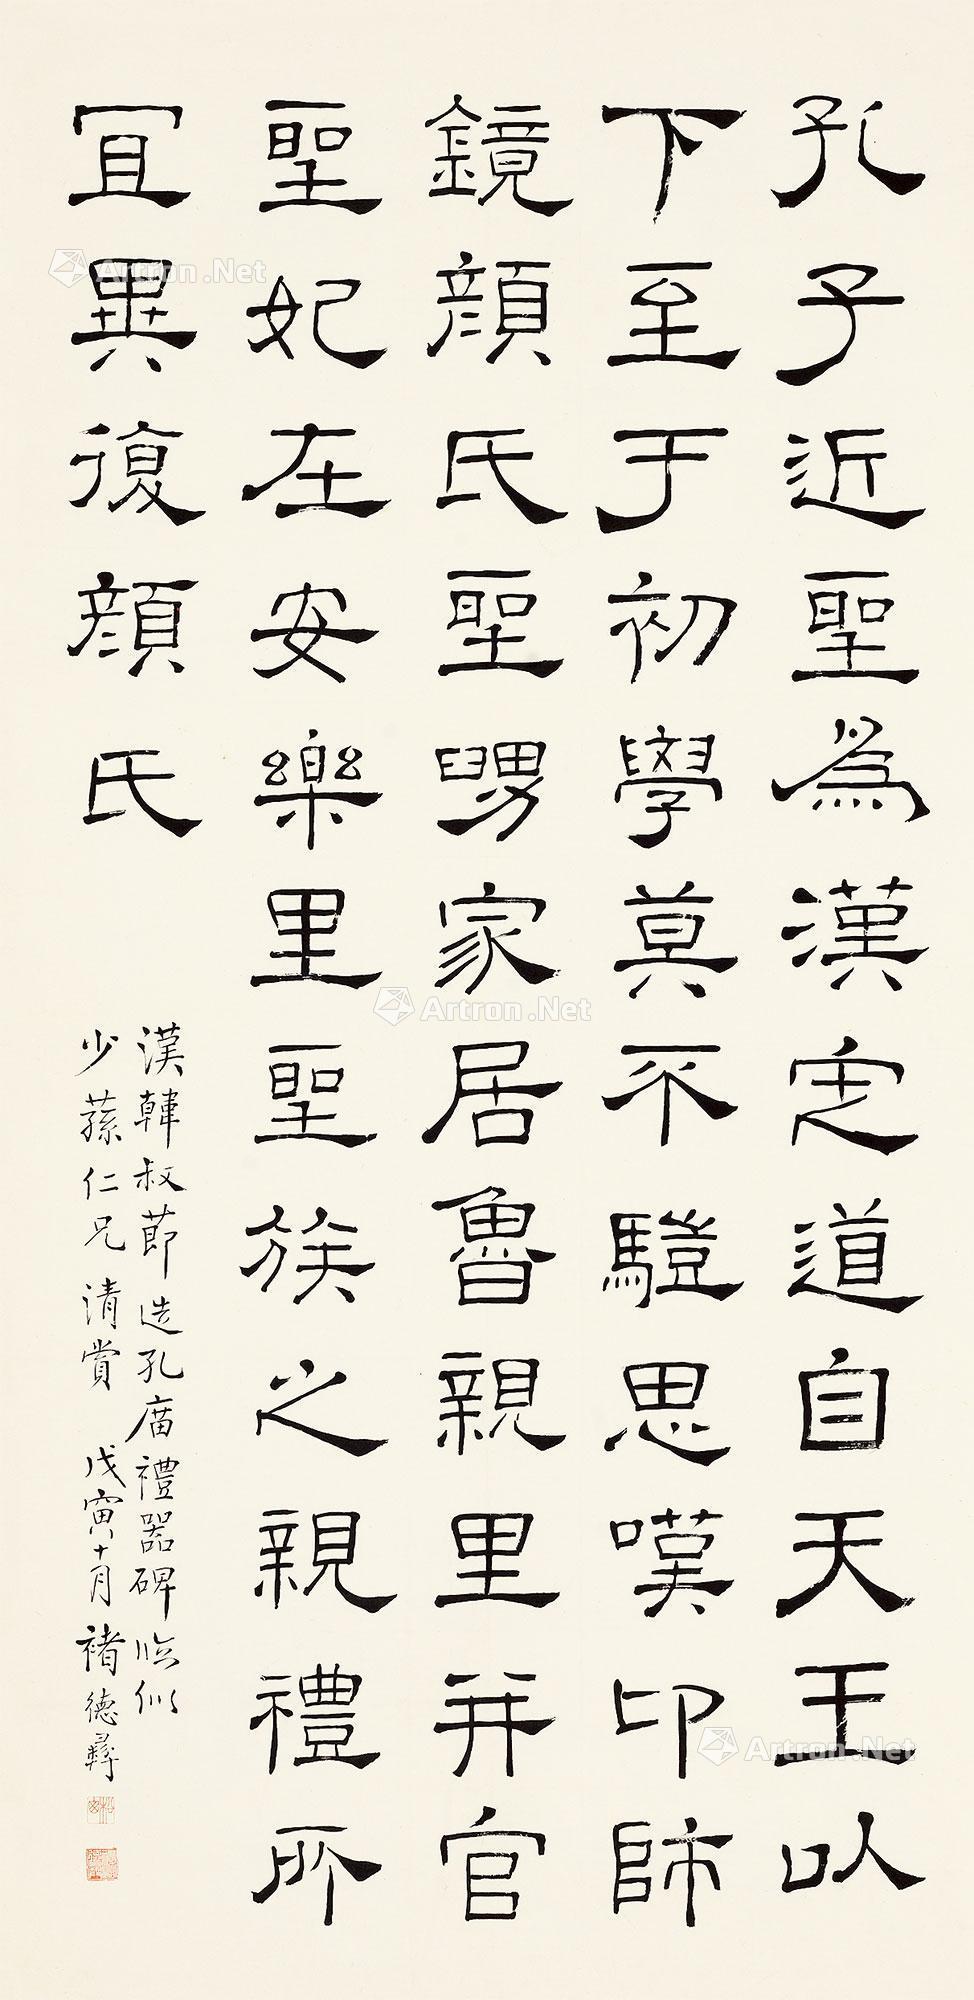 孔子近聖為漢定道自天王以
下至于初學莫不驥思嘆卬師
鏡顏氏聖舅家居魯親里并官
聖妃在安樂里聖族之親禮所
宜異復顏氏
漢韓叔節造孔廟禮器碑臨似
少蓀仁兄清賞 戊寅十月 褚德彝
Artron.Net
Artron.Net
Artron.Net